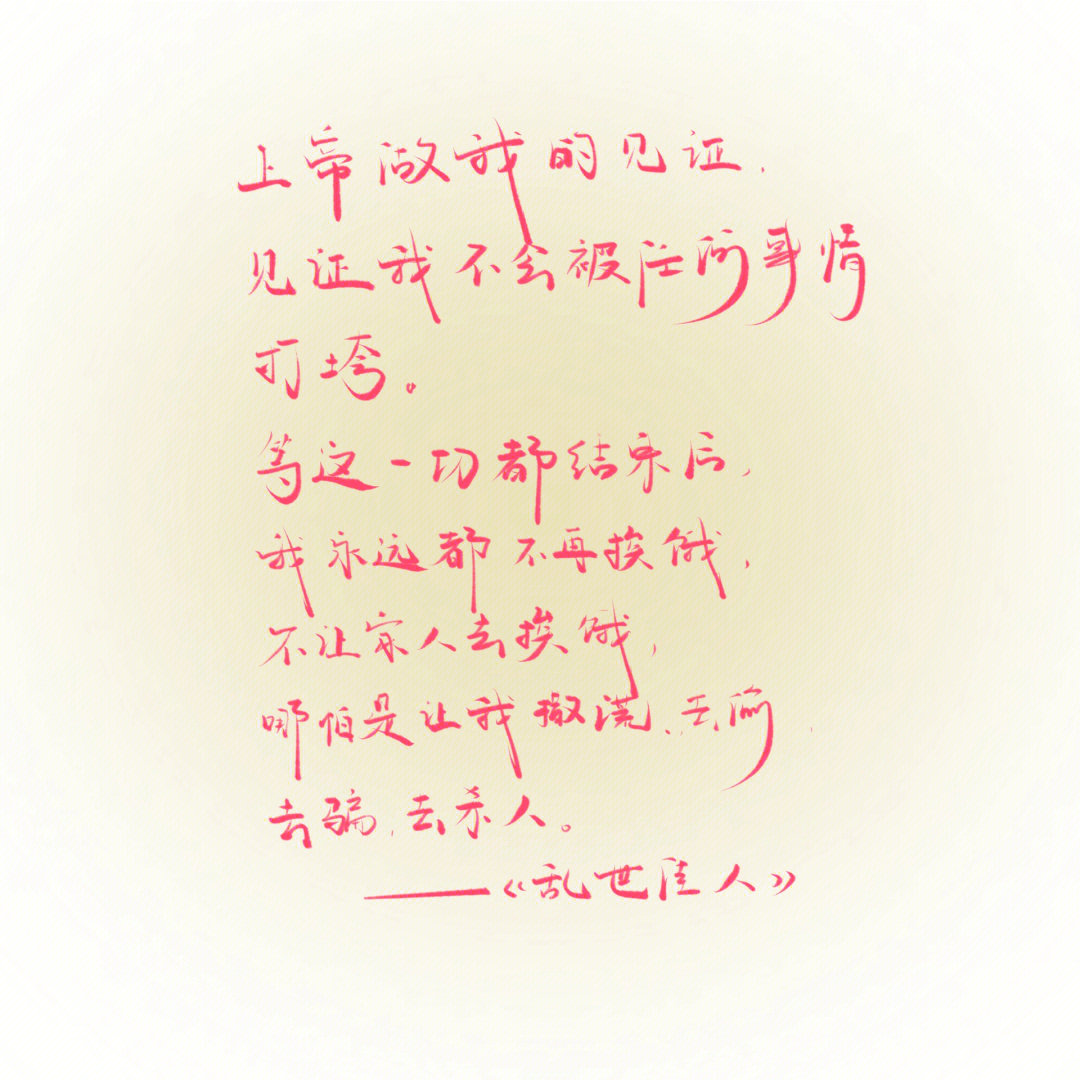 上帝做我的见证，
见证我不会被任何事情
打垮。
等这一切都结束后，
我永远都不再挨饿，
不让家人去挨饿，
哪怕是让我撒谎、去偷，
去骗，去杀人。
——《乱世佳人》